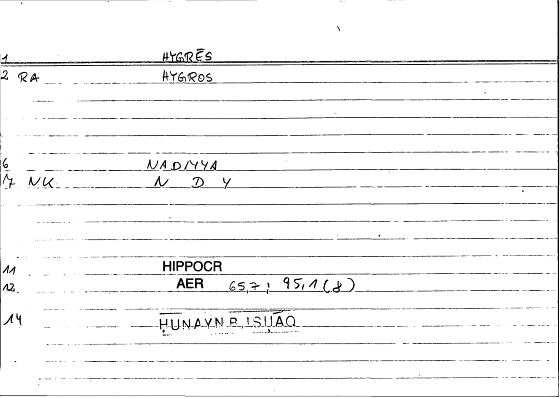 1 HYGRĒS
2 RA HYGROS
6 NADIYYA
7 NK N D Y
11 HIPPOCR
12 AER 65,7; 95,1(8)
14 ḤUNAYN B. ISḤĀQ